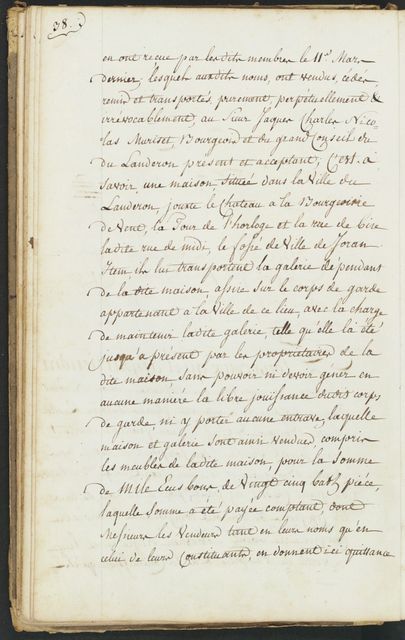 38.
en ont reçue par lesdits membres le 11.e Mars
dernier, lesquels auxdits noms, ont vendus, cédés
remis et transportés, purement, perpétuellement &
irrévocablement, au Sieur Jaques Charles Nico-
las Muriset, Bourgeois et du grand Conseil de
du Landeron présent et acceptant; C'est. à
savoir, une maison située dans la Ville du
Landeron, joute le Chateau à la Bourgeoisie
de vent, la Tour de l'horloge et la rue de bise
ladite rue de midi, le fossé de Ville de Joran.
Item, ils lui transportent la galerie dépendant
de la dite maison, assise sur le corps de garde
appartenant à la Ville de ce lieu, avec la charge
de maintenir ladite galerie, telle qu'elle l'a été
jusqu'à présent par les propriétaires de la
dite maison, sans pouvoir ni devoir gener en
aucune maniere la libre jouissance dudit corps
de garde, ni y porter aucune entrave, laquelle
maison et galerie sont ainsi vendues compris
les meubles de ladite maison, pour la somme
de Mile Ecus bons, de vingt cinq batz pièce,
laquelle somme a été payée comptant, dont
Messieurs les Vendeurs tant en leurs noms qu'en
celui de leurs Constituants, en donnent ici quittance